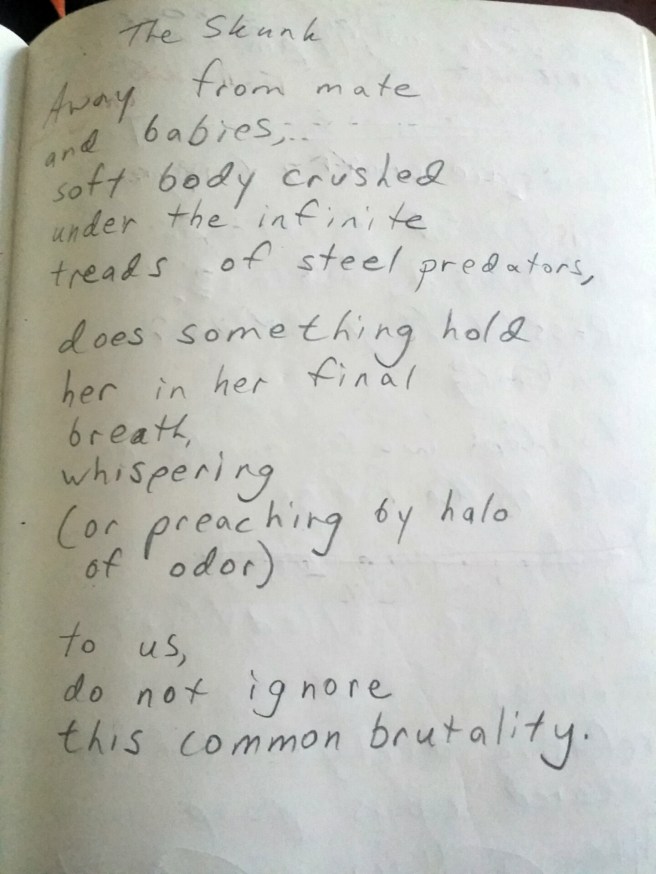 The Skunk
Away from mate
and babies,..
soft body crushed
under the infinite
treads of steel predators,
does something hold
her in her final
breath,
whispering
(or preaching by halo
of odor)
to us,
do not ignore
this common brutality.